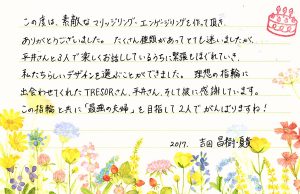 この度は、素敵なマリッジリング・エンゲージリングを作って頂き、
ありがとうございました。たくさん種類があってとても迷いましたが、
平井さんと3人で楽しくお話ししているうちに緊張もほぐれていき、
私たちらしいデザインを選ぶことができました。理想の指輪に
出会わせてくれたTRESORさん、平井さん、そして彼に感謝しています。
この指輪と共に「最強の夫婦」を目指して2人でがんばりますね!
2017. 吉田